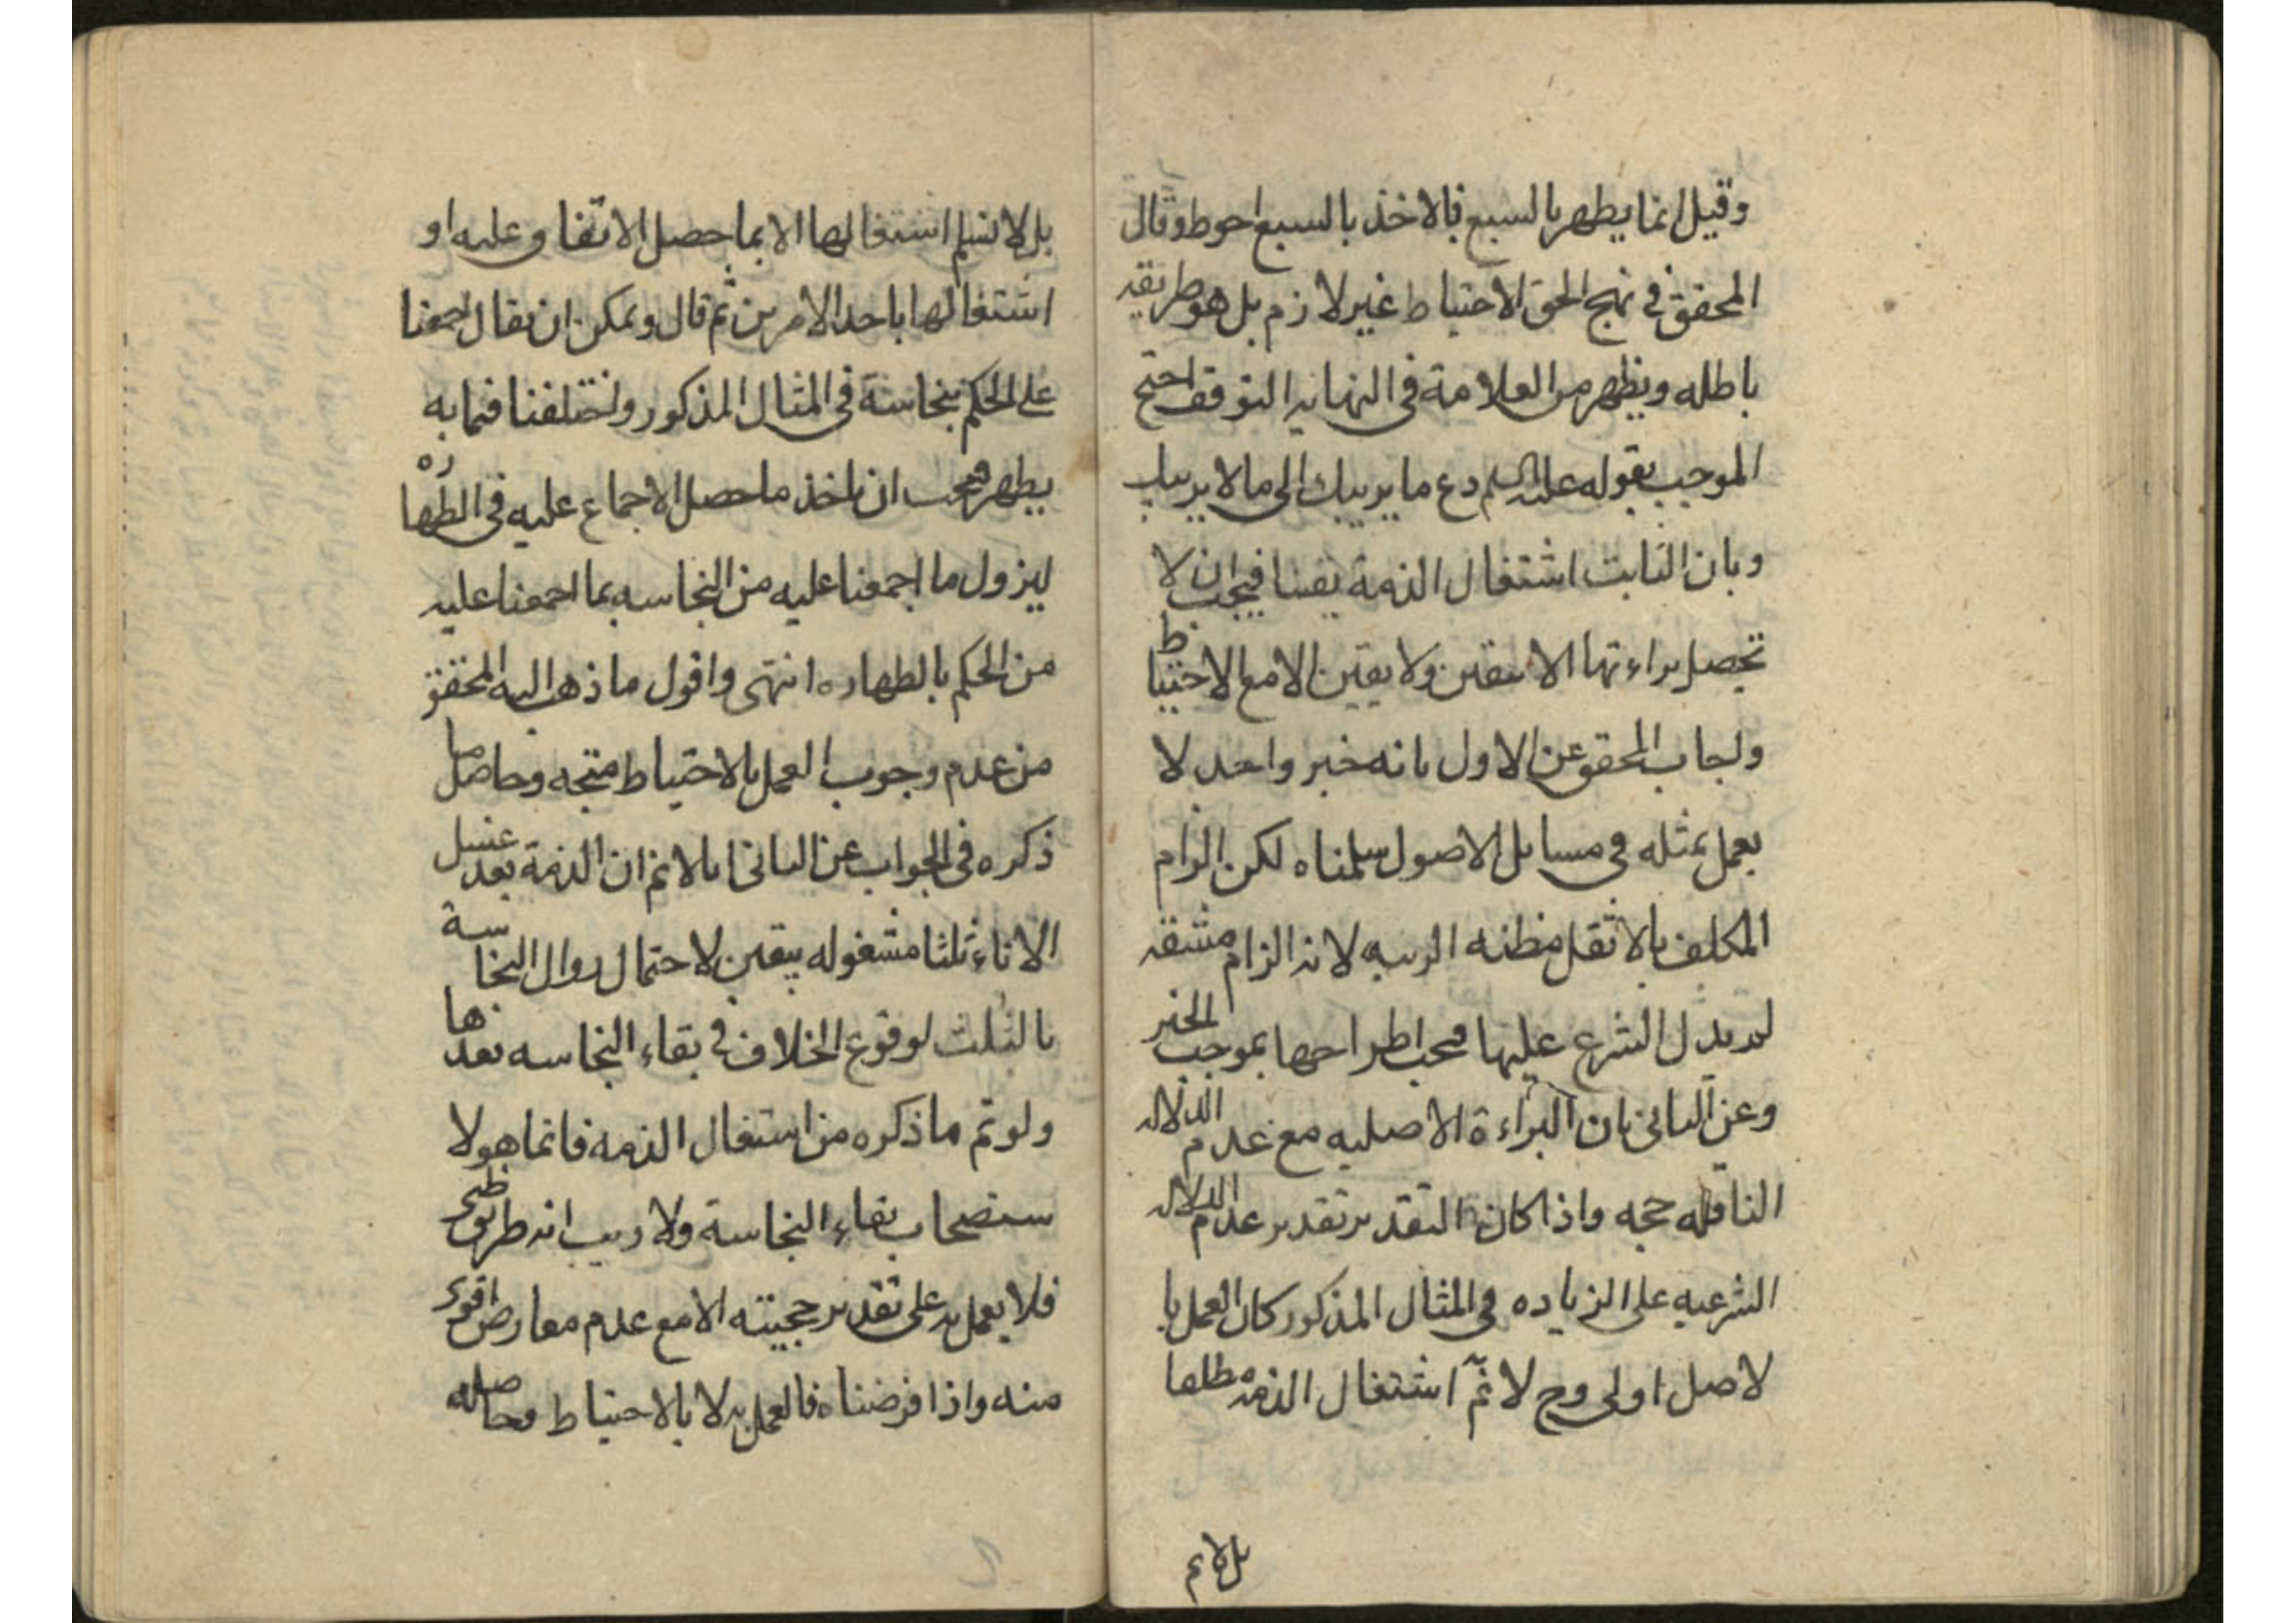 وقيل انما يطهر بالسبع فالاخذ بالسبع احوط وقال
المحقق في نهج الحق الاحتياط غير لازم بل هو طريقه
باطله ويظهر من العلامة في النهايه التوقف احتج
الموجب بقوله عليه السلم دع ما يريبك الى ما لا يريبك
وبان الثابت اشتغال الذمة يقينا فيجب ان لا
تحصل براءتها الا بيقين ولا يقين الا مع الاحتياط
واجاب المحقق عن الاول بانه خبر واحد لا
يعمل بمثله في مسايل الاصول سلمناه لكن الزام
المكلف بالاثقل مظنه الريبه لانه الزام مشقه
لم يدل الشرع عليها فيجب اطراحها بموجب الخبر
وعن الثاني بان البراءة الاصليه مع عدم الدلاله
الناقله حجه واذا كان التقدير تقدير عدم الدلاله
الشرعيه على الزياده في المثال المذكور كان العمل با
لاصل اولى وح لا نم اشتغال الذمه مطلقا
بل لا نم
بل لا نسلم اشتغالها الا بما حصل الاتفاق عليه او
اشتغالها باحد الامرين ثم قال ويمكن ان يقال اجمعنا
على الحكم بنجاسة في المثال المذكور واختلفنا فيما به
يطهر فيجب ان ناخذ ما حصل الاجماع عليه في الطهاره
ليزول ما اجمعنا عليه من النجاسه بما اجمعنا عليه
من الحكم بالطهاره انتهى واقول ما ذهب اليه المحقق
من عدم وجوب العمل بالاحتياط متجه وحاصل ما
ذكره في الجواب عن الثاني انا لا نم ان الذمة بعد غسل
الاناء ثلثا مشغوله بيقين لاحتمال زوال النجاسة
بالثلث لوقوع الخلاف في بقاء النجاسه بعدها
ولو تم ما ذكره من اشتغال الذمه فانما هو لا
ستصحاب بقاء النجاسة ولا ريب انه طريق ظني
فلا يعمل به على تقدير حجيته الا مع عدم معارض اقوى
منه واذا فرضناه فالعمل به لا بالاحتياط وحاصله